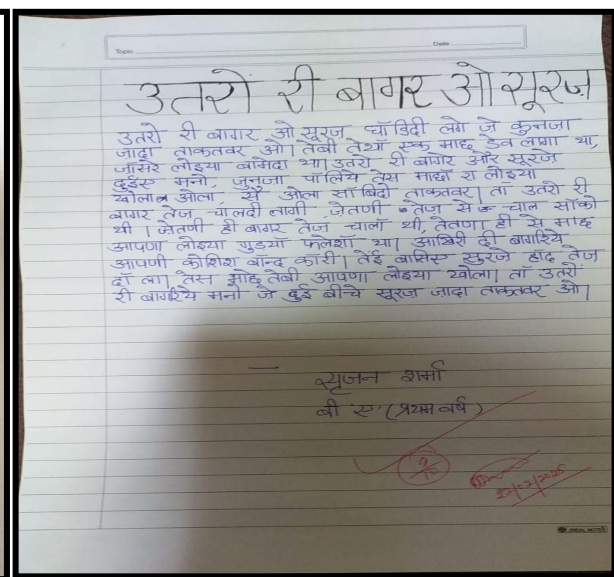 Topic
Date
उतरो री बागर ओ सूरज़
उतरो री बागर ओ सूरज चॉडिदी लगे जे कुनजा
जादा ताकतवर ओ। तेबी तेथा एक माछ डेव लागा था,
जॉसरे लोइया बामेदा था। उतरो री बागर और सूरजे
दुईए मनो, जुनुजा पॉलिये तेस माछा रा लोइया
खोला ओला, से ओला सॉबिदी ताकतवर। तॉ उतरो री
बागर तेज चालदी लागी, जेतणी तेज से चाल सॉको
थी। जेतणी ही बागर तेज चाला थी, तेतणा ही से माछ
आपणा लोइया गुडया फलेशॉ था। आखिरी दी बागरिये
आपणी कोशिश बॉन्द कॉरी। तेई बासिए सुरजे हाद तेज
दॉ ला। तेस माछे तेबी आपणा लोइया खोला। तॉ उतरो
री बागरिये मनो जे दुई बीचे सूरज जादा ताकतवर ओ।
सृजन शर्मा
बी ए (प्रथम वर्ष)
9/10
22/02/2025
JINDAL NOTES